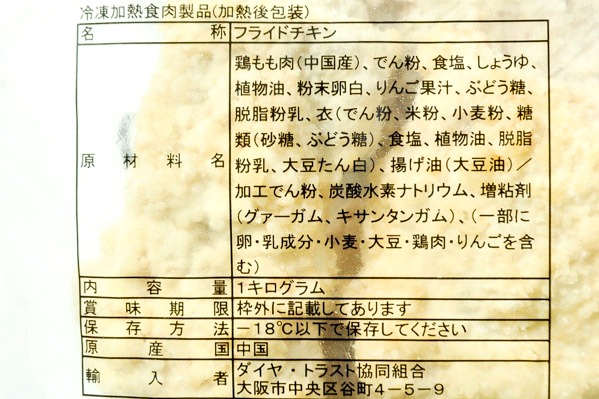 冷凍加熱食肉製品(加熱後包装)
名称 フライドチキン
原材料名 鶏もも肉(中国産)、でん粉、食塩、しょうゆ、
植物油、粉末卵白、りんご果汁、ぶどう糖、
脱脂粉乳、衣(でん粉、米粉、小麦粉、糖
類(砂糖、ぶどう糖)、食塩、植物油、脱脂
粉乳、大豆たん白)、揚げ油(大豆油)/
加工でん粉、炭酸水素ナトリウム、増粘剤
(グァーガム、キサンタンガム)、(一部に
卵・乳成分・小麦・大豆・鶏肉・りんごを含
む)
内容量 1キログラム
賞味期限 枠外に記載してあります
保存方法 -18℃以下で保存してください
原産国 中国
輸入者 ダイヤ・トラスト協同組合
大阪市中央区谷町4-5-9